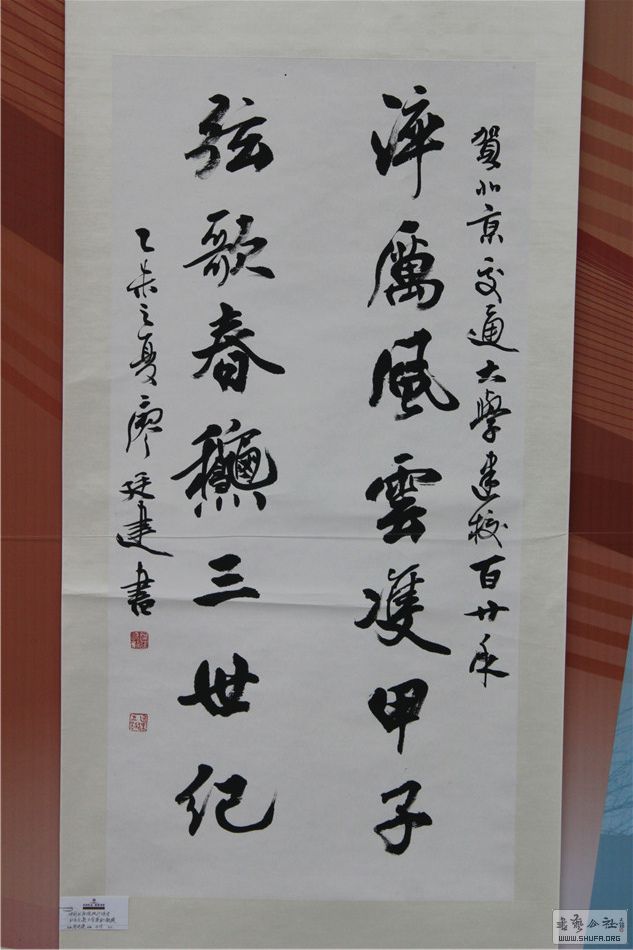 賀北京交通大學建校百廿年
淬厲風雲雙甲子
弦歌春龝三世紀
乙未之夏廖廷建書
書藝公社
WWW.SHUFA.ORG